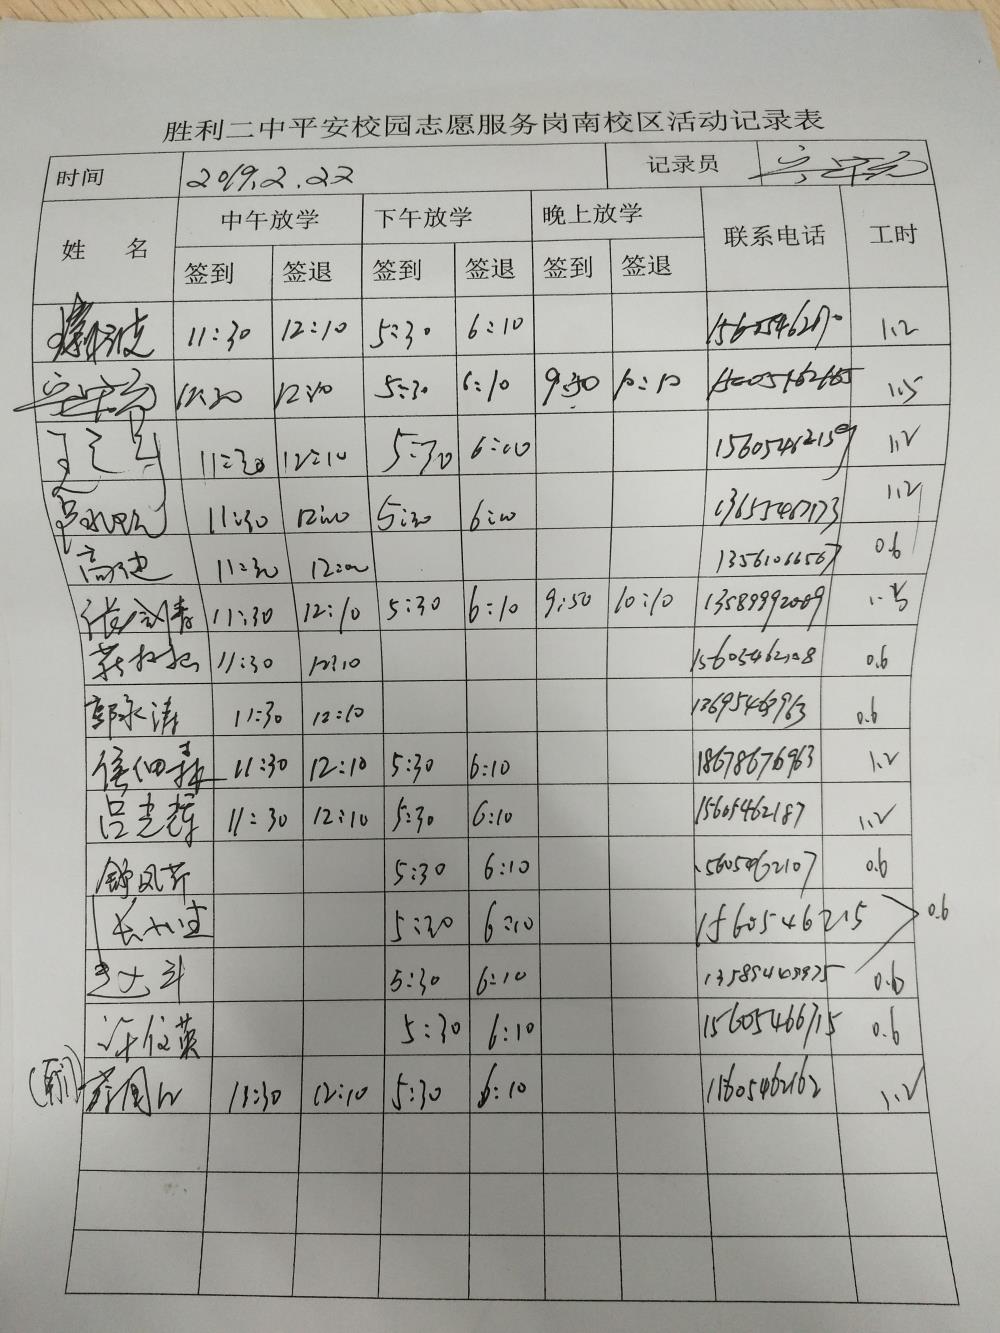 胜利二中平安校园志愿服务岗南校区活动记录表
时间 2019.2.22 记录员
姓 名 中午放学 下午放学 晚上放学 联系电话 工时
签到 签退 签到 签退 签到 签退
11:30 12:10 5:30 6:10 1.2
11:30 12:10 5:30 6:10 9:50 10:10 1.5
11:30 12:10 5:30 6:10 15605462159 1.2
11:30 12:10 5:30 6:10 13655467173 1.2
高 11:30 12:00 13561066567 0.6
张 11:30 12:10 5:30 6:10 9:50 10:10 13589992009
11:30 12:10 15605462108 0.6
郭永涛 11:30 12:10 0.6
11:30 12:10 5:30 6:10 18678676963 1.2
吕光辉 11:30 12:10 5:30 6:10 15605462187 1.2
舒凤芹 5:30 6:10 15605462107 0.6
5:30 6:10 1560546215 0.6
5:30 6:10 0.6
许俊英 5:30 6:10 15605466715 0.6
11:30 12:10 5:30 6:10 15605462162 1.2